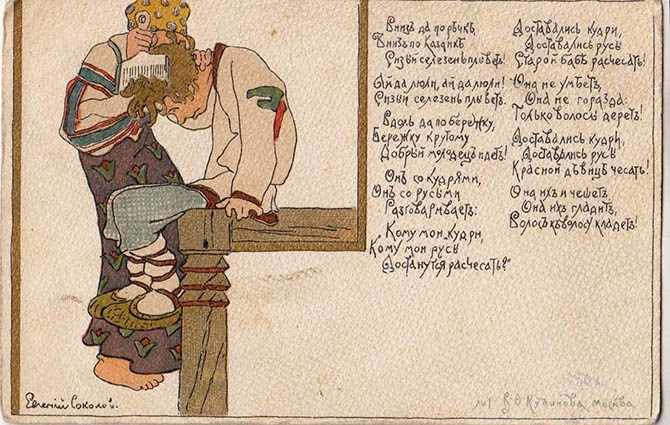 Внизъ да по рѣчкѣ,
Внизъ по Казанкѣ
Сизый селезень плыветъ!
Ай да люли, ай да люли!
Сизый селезень плыветъ.
Вдоль да по бережку,
Бережку крутому
Добрый молодецъ идетъ!
Онъ со кудрями,
Онъ со русыми
Разговариваетъ:
Кому мои кудри,
Кому мои русы
Достанутся расчесать?
Доставались кудри,
Доставались русы
Старой бабѣ расчесать!
Она не умѣетъ,
Она не горазда:
Только волосъ деретъ!
Доставались кудри,
Доставались русы
Красной дѣвицѣ чесать!
Она ихъ и чешетъ
Она ихъ гладитъ,
Волосъ къ волосу кладетъ!
Евгенiй Соколов.
лит Кудинова Москва